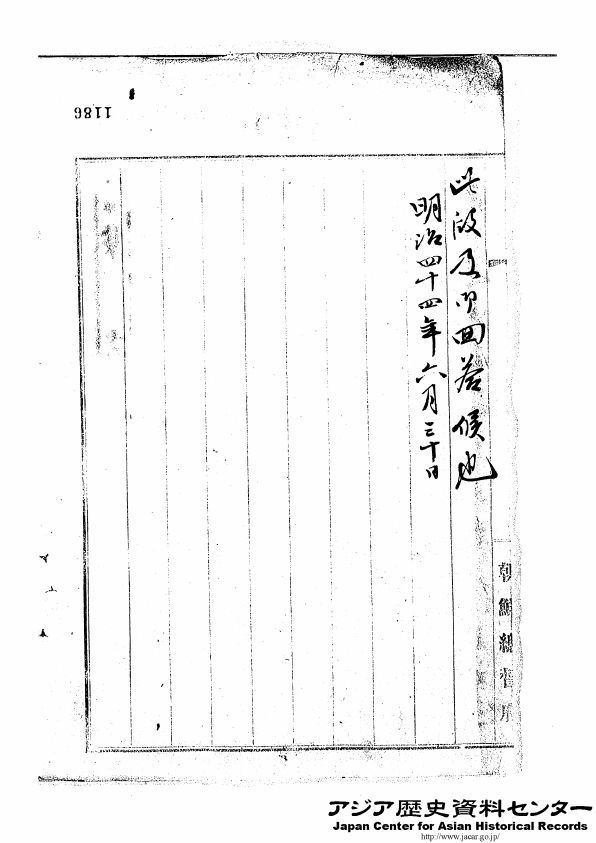 此段及御回答候也
明治四十四年六月三十日
朝鮮総督府
1186
アジア歴史資料センター
Japan Center for Asian Historical Records
http://www.jacar.go.jp/